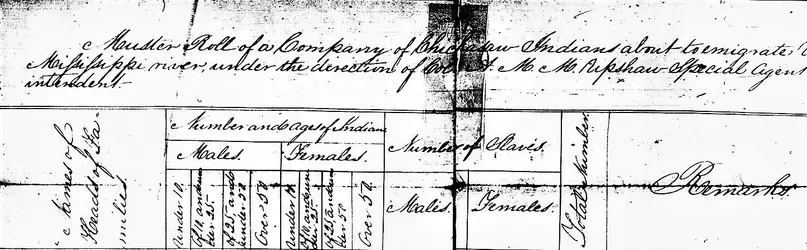 Muster Roll of a Company of Chickasaw Indians about to emigrate
Mississippi river, under the direction of A. M. M. Upshaw Special Agent
intendent
Names of
Heads of Fa
milies
Number and ages of Indian
Males.
Females.
Under 10.
Of 10 and un
der 25.
of 25 and
under 50
Over 50
Under 10.
Of 10 and un
der 25.
of 25 and un
der 50
Over 50
Number of Slaves.
Males.
Females.
Total Number.
Remarks